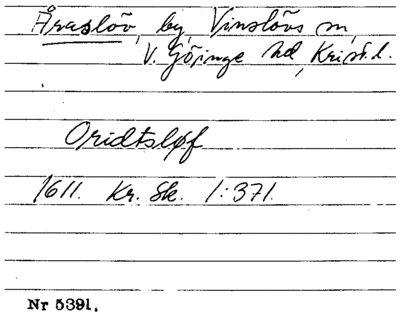 Åraslöv, by, Vinslövs sn,
V. Göinge hd, Krist. l.
Oridtsløf
1611. Kr. Sk. 1:371.
Nr 5391.